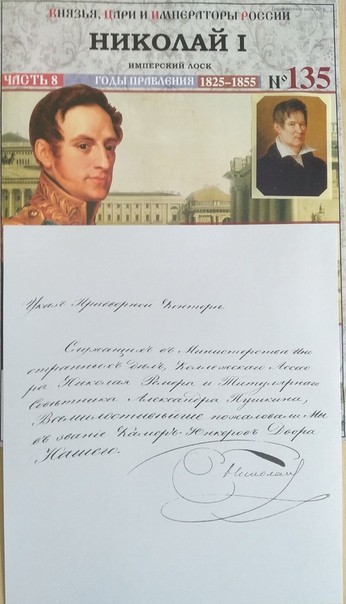 КНЯЗЬЯ, ЦАРИ И ИМПЕРАТОРЫ РОССИИ
НИКОЛАЙ I
ИМПЕРСКИЙ ЛОСК
ЧАСТЬ 8
ГОДЫ ПРАВЛЕНИЯ 1825–1855
№135
Указъ Придворной Конторѣ.
Служащихъ въ Министерствѣ Ино
странныхъ дѣлъ, Коллежскаго Ассесо
ра Николая Ремера и Титулярнаго
Совѣтника Александра Пушкина,
Всемилостивѣйше пожаловали Мы
въ званіе Камеръ-Юнкеровъ Двора
Нашего.
Николай